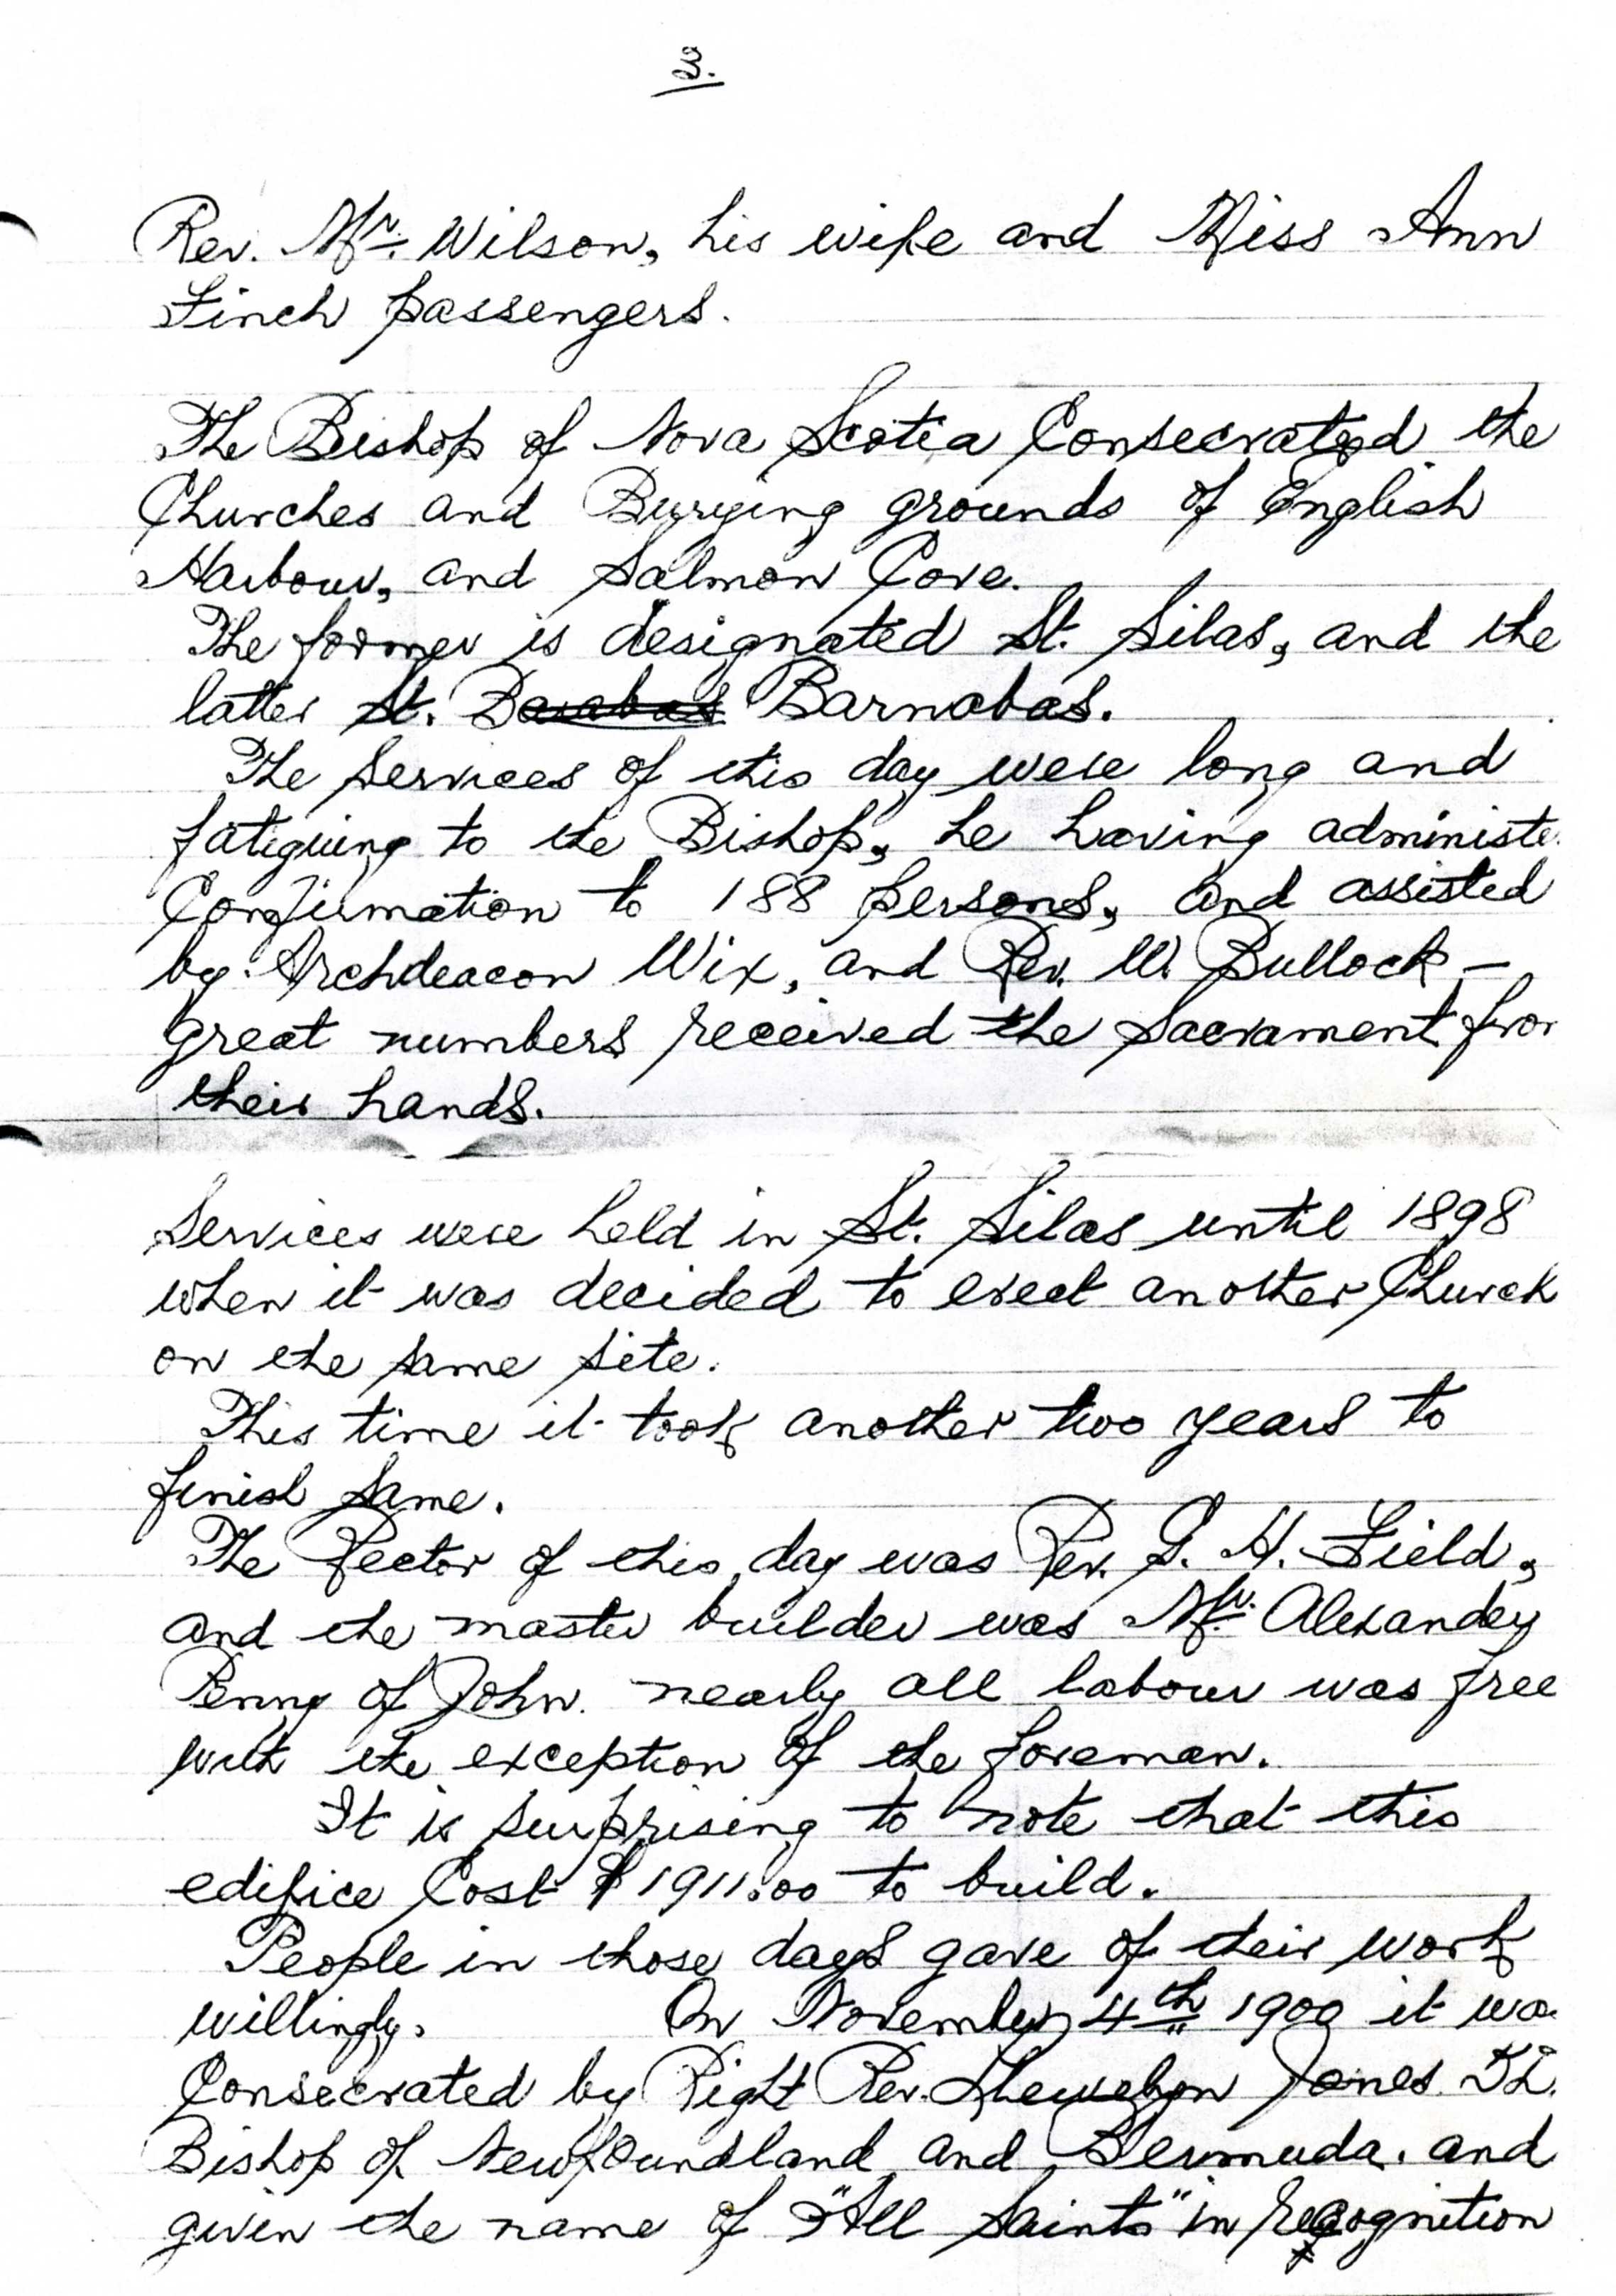 2.
Rev. Mr. Wilson, his wife and Miss Ann
Finch passengers.
The Bishop of Nova Scotia Consecrated the
Churches and Burying grounds of English
Harbour, and Salmon Cove.
The former is designated St. Silas, and the
latter St. Barabas Barnabas.
The Services of this day were long and
fatiguing to the Bishop, he having administe
Confirmation to 188 persons, and assisted
by Archdeacon Wix, and Rev. W. Bullock —
great numbers received the Sacrament from
their hands.
Services were held in St. Silas until 1898
when it was decided to erect another Church
on the same site.
This time it took another two years to
finish same.
The Rector of this day was Rev. G. H. Field,
and the master builder was Mr. Alexander
Penny of John. nearly all labour was free
with the exception of the foreman.
It is surprising to note that this
edifice Cost $1911.00 to build.
People in those days gave of their work
willingly. On November 4th 1900 it wa
Consecrated by Right Rev. Llewelyn Jones
Bishop of Newfoundland and Bermuda. and
given the name of "All Saints" in recognition